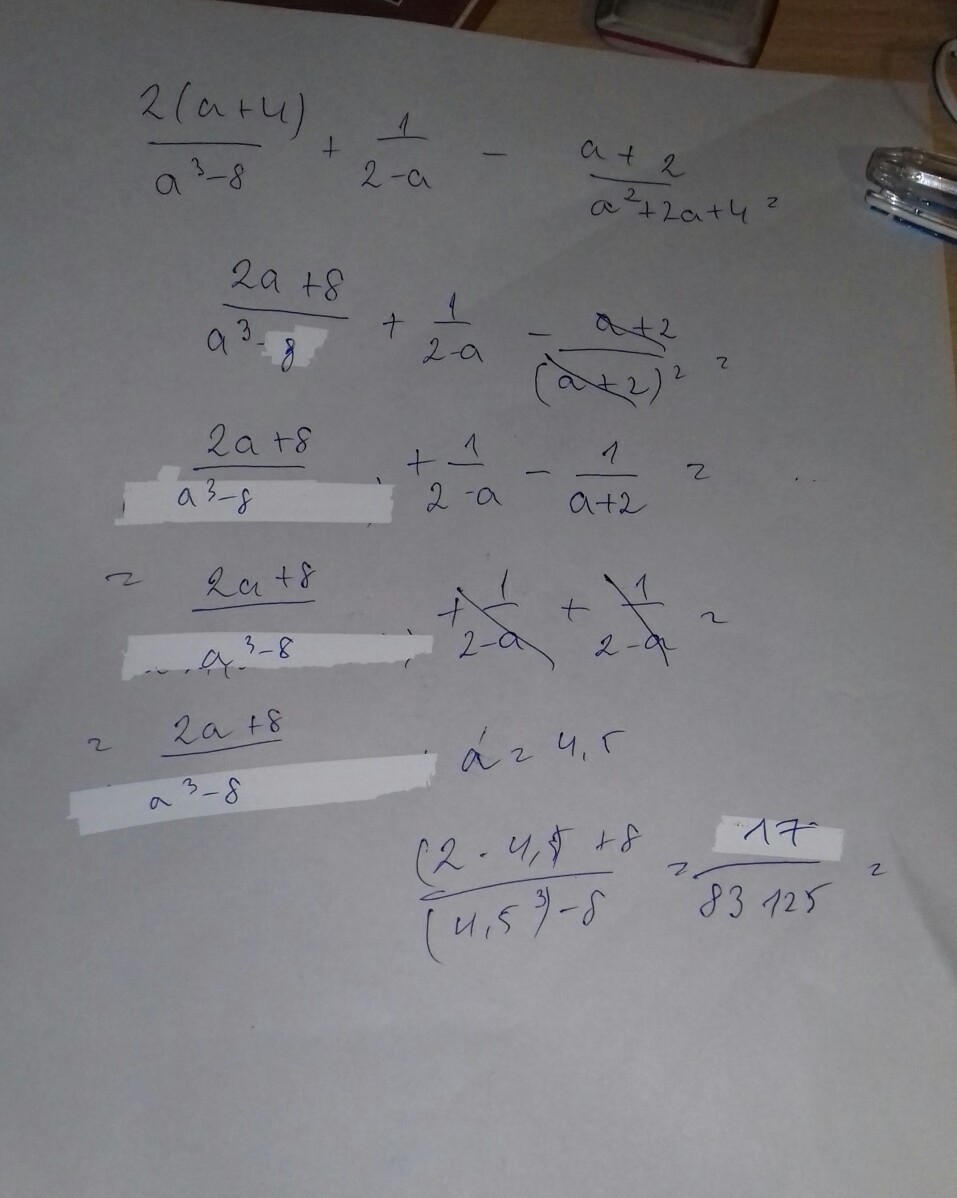 2(a+4)/a³-8 + 1/2-a - a+2/a²+2a+4 =
2a+8/a³-8 + 1/2-a - a+2/(a+2)² =
2a+8/a³-8 + 1/2-a - 1/a+2 =
= 2a+8/a³-8 + 1/2-a + 1/2-a =
= 2a+8/a³-8 a = 4,5
(2·4,5+8/(4,5³)-8 = 17/83 125 =